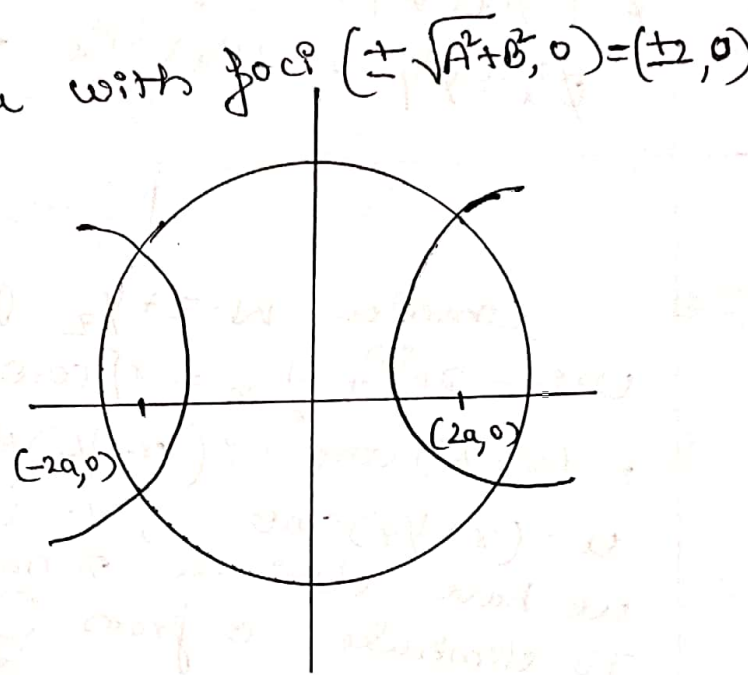 with foci (± √A²+B², 0) = (±2, 0)
(-2a, 0)
(2a, 0)